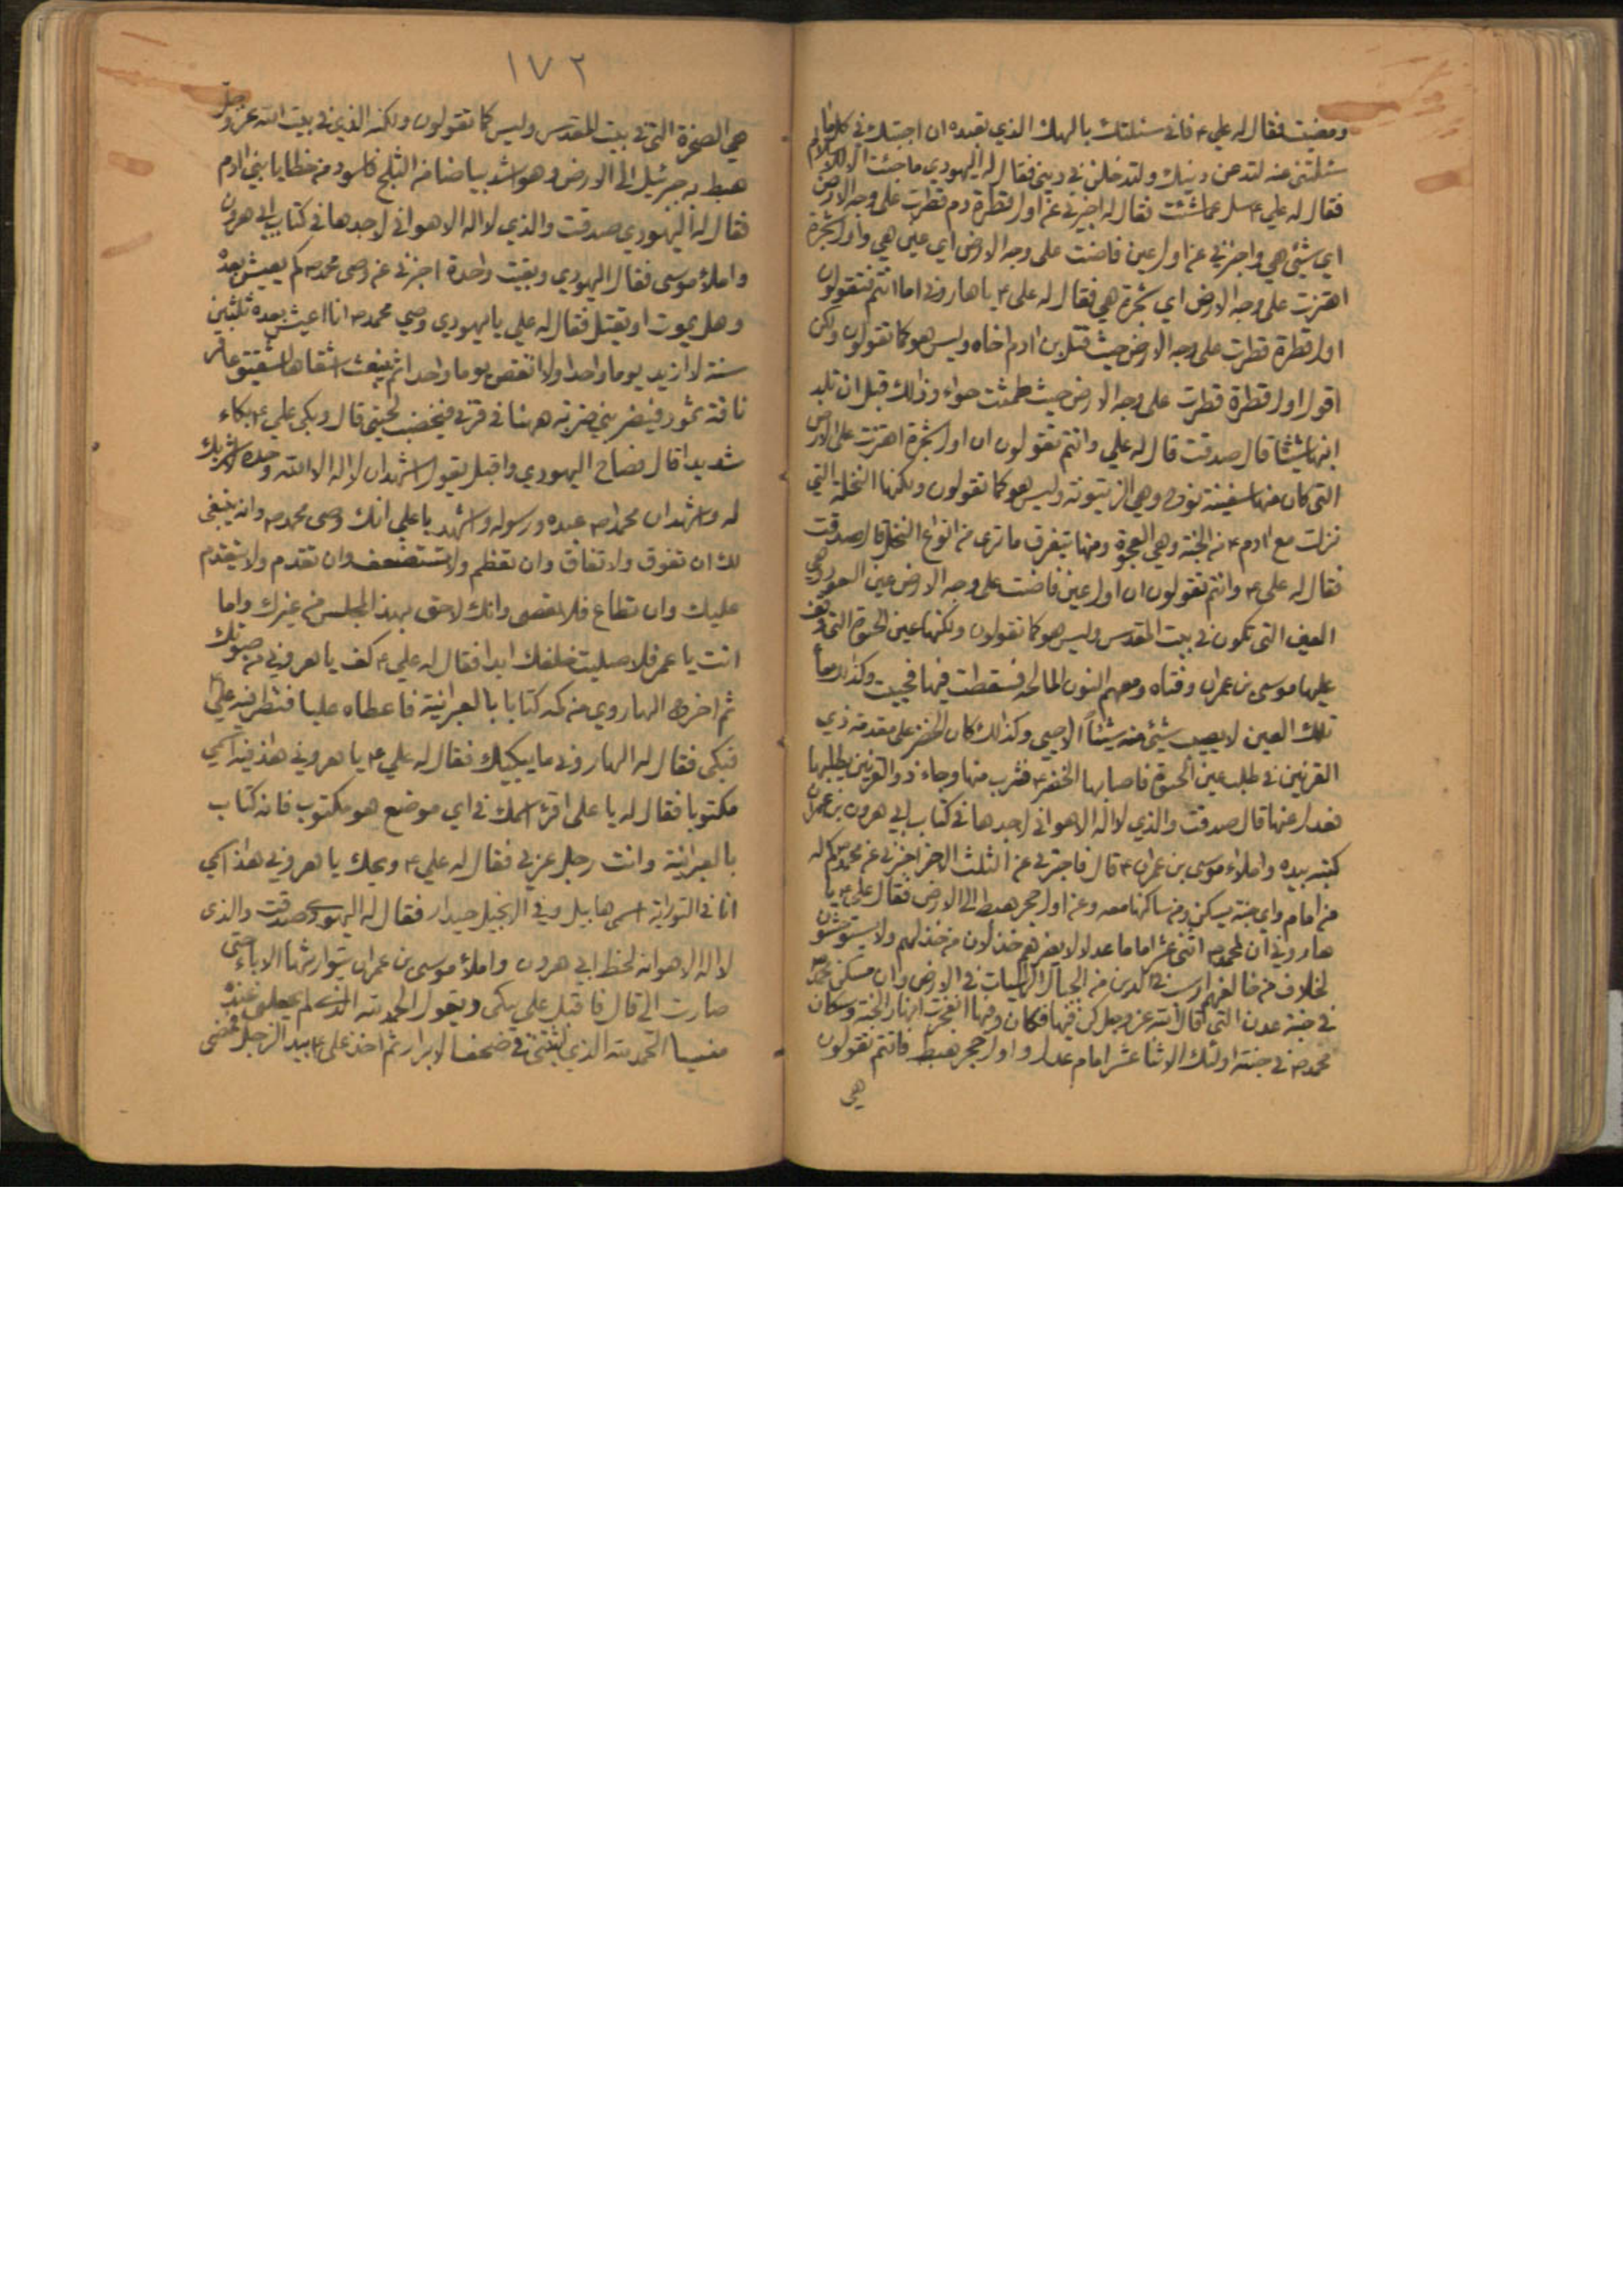 ومضيت فقال له علي ۴ فاني سئلتك بالهك الذي تعبده ان اجبتك في كل ما
سئلتني عنه لتدعن دينك ولتدخلن في ديني فقال له اليهودي ما جئت الا للاسلام
فقال له علي ۴ سل عما شئت فقال له اخبرني عن اول قطرة دم قطرت على وجه الارض
اي شيئ هي واخبرني عن اول عين فاضت على وجه الارض اي عين هي واول شجرة
اهتزت على وجه الارض اي شجرة هي فقال له علي ۴ يا هاروني اما انتم فتقولون
اول قطرة قطرت على وجه الارض حيث قتل بن ادم اخاه وليس هو كما تقولون ولكن
اقول اول قطرة قطرت على وجه الارض حيث طمثت حواء وذلك قبل ان تلد
ابنها شيثا قال صدقت قال له علي وانتم تقولون ان اول شجرة اهتزت على الارض
التي كان منها سفينة نوح وهي الزيتونة وليس هو كما تقولون ولكنها النخلة التي
نزلت مع ادم ۴ من الجنة وهي العجوة ومنها يتفرق ما ترى من انواع النخل قال صدقت
فقال له علي ۴ وانتم تقولون ان اول عين فاضت على وجه الارض عين وهي
العين التي تكون في بيت المقدس وليس هو كما تقولون ولكنها عين الحيوة التي وقف
عليها موسى بن عمران وفتاه ومعهم النون المالحة فسقطت فيها فحييت وكذا
تلك العين لا يصيب شيئ منه شيئاً الا حيي وكذلك كان الخضر على مقدمة ذي
القرنين في طلب عين الحيوة فاصابها الخضر ۴ فشرب منها وجاء ذو القرنين يطلبها
فعدل عنها قال صدقت والذي لا اله الا هو اني لاجدها في كتاب ابي هرون بن عمران
كتبه بيده واملاء موسى بن عمران ۴ قال فاخبرني عن الثلث الاخر اخبرني عن محمد ص كم له
من امام واي جنة يسكن ومن ساكنها معه وعن اول حجر هبط الى الارض فقال علي ۴ يا
هاروني ان لمحمد ص اثنى عشر اماما عدلا لا يضرهم خذلان من خذلهم ولا يستوحشون
لخلاف من خالفهم ارسب في الدين من الجبال الراسيات في الارض وان مسكن محمد ص
في جنة عدن التي قال الله عز وجل كن فيها فكان ومنها انفجرت انهار الجنة وسكان
محمد ص في جنته اولئك الاثنا عشر امام عدل واول حجر هبط فانتم تقولون
هي
١٧٢
هي الصخرة التي في بيت المقدس وليس كما تقولون ولكنه الذي في بيت الله عز وجل
هبط به جبرئيل الى الارض وهو اشد بياضا من الثلج فاسود من خطايا بني ادم
فقال له اليهودي صدقت والذي لا اله الا هو اني لاجدها في كتاب ابي هرون
واملاء موسى فقال اليهودي وبقيت واحدة اخبرني عن وصي محمد ص كم يعيش بعده
وهل يموت او يقتل فقال له علي يا يهودي وصي محمد ص انا اعيش بعده ثلثين
سنة لا ازيد يوما واحدا ولا انقص يوما واحدا ثم ينبعث اشقاها شقيق عاقر
ناقة ثمود فيضربني ضربة ههنا في قرني فيخضب لحيتي قال وبكى علي ۴ بكاء
شديدا قال فصاح اليهودي واقبل يقول اشهد ان لا اله الا الله وحده لا شريك
له واشهد ان محمدا ص عبده ورسوله واشهد يا علي انك وصي محمد ص وانه ينبغي
لك ان تفوق ولا تفاق وان تعظم ولا تستضعف وان تقدم ولا يتقدم
عليك وان تطاع فلا تعصى وانك لاحق بهذا المجلس من غيرك واما
انت يا عمر فلا صليت خلفك ابدا فقال له علي ۴ كف يا هروني من صوتك
ثم اخرج الهاروني من كمه كتابا بالعبرانية فاعطاه عليا فنظر فيه علي ۴
فبكى فقال له الهاروني ما يبكيك فقال له علي ۴ يا هروني هذا فيه اسمي
مكتوبا فقال له يا علي اقرء اسمك في اي موضع هو مكتوب فانه كتاب
بالعبرانية وانت رجل عربي فقال له علي ۴ ويحك يا هروني هذا اسمي
انا في التورية اسمي هابيل وفي الانجيل حيدار فقال له اليهودي صدقت والذي
لا اله الا هو انه لخط ابي هرون واملاء موسى بن عمران يتوارثها الاباء حتى
صارت الي قال فاقبل علي يبكي ويقول الحمد لله الذي لم يجعلني عنده
منسيا الحمد لله الذي اثبتني في صحف الابرار ثم اخذ علي ۴ بيد الرجل فمضى